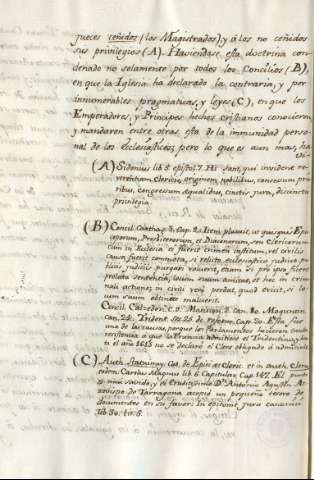 jueces ceñidos (los Magistrados) y á los no ceñidos
sus privilegios (A). Haviendose esta doctrina con-
denado no solamente por todos los Concilios (B),
en que la Iglesia ha declarado la contraria, y por
innumerables pragmaticas, y leyes (C), en que los
Emperadores, y Principes hechos cristianos conocieron,
y mandaron entre otras esta de la immunidad perso-
nal de los Eclesiasticos; pero lo que es aun mas, ha-
vi-
(A) Sidonius lib. 8. epistol. 7. Hi sunt, qui invident
Clericis, originem nobilibus, consensum
congressum aequalibus, cinctis jura, discinctis
privilegia.
(B) Concil. Cartha. 3. Cap. 9. Item placuit, ut quisquis Epis-
coporum, Presbiterorum, et Diaconorum, seu Clericorum
cum in Ecclesia ei fuerit crimen
causa fuerit commota, si relicto ecclesiastico judicio pu-
blicis judiciis purgari voluerit, etiam si pro ipso fuerit
prolata sententia, locum suum amittat, et hoc in crimi-
nali actione; in civili vero perdat, quod evicit, si lo-
cum suum obtinere maluerit.
Concil. Calzedon. c. 9. Matiscon. 2. can. 80. Mogunen.
can. 28. Trident. ses. 25. de reform. cap. 20. Esta fue
una de las causas, porque los Parlamentos hicieron tanta
resistencia á que la Francia admitiese el Tridentino, has-
ta el año 1615 no se declaró el Clero obligado á admitirle.
(C) Auth. Statuimus, Cod. de Episc. et Cleric. et in auth. Cleric.
eodem. Carolus Magnus lib. 6. Capitular. Cap. 147. El punto
es mui savido, y el eruditisimo Dn. Antonio Agustin Ar-
zovispo de Tarragona acopió un pequeño tesoro de
documentos en su favor: In epitom. juris canonici
lib. 30. tit. 8.